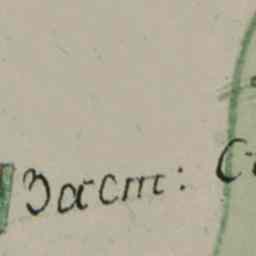 Заст: С